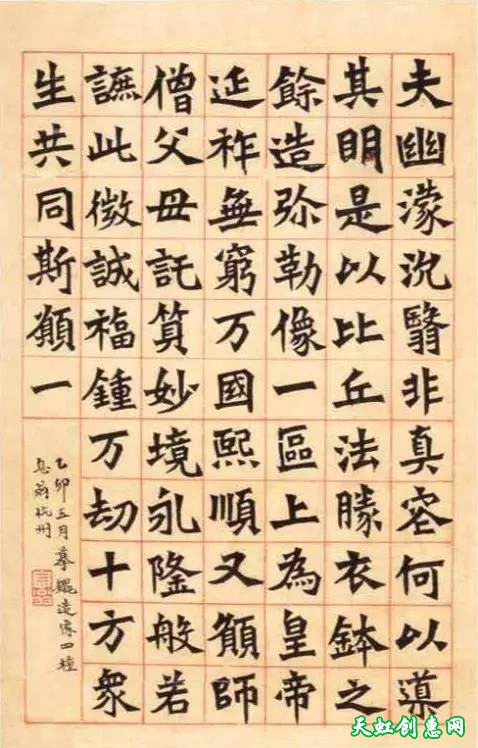 夫幽濛沉翳非真容何以導
其明是以比丘法勝衣鉢之
餘造弥勒像一區上為皇帝
延祚無窮万國熙順又願師
僧父母託算妙境永隆般若
謶此微誠福鍾万劫十方衆
生共同斯願一
乙卯五月摹魏造像四種
息翁杭州
天虹创惠网